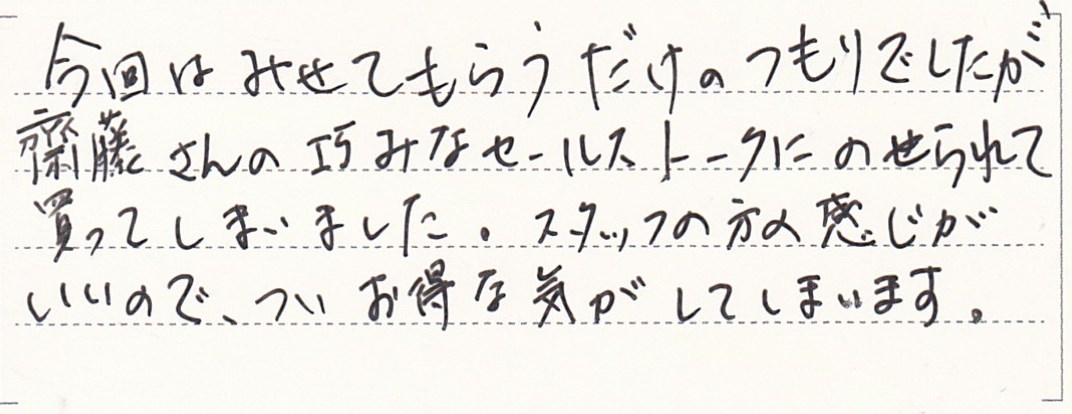 今回はみせてもらうだけのつもりでしたが
齋藤さんの巧みなセールストークにのせられて
買ってしまいました。スタッフの方の感じが
いいので、ついお得な気がしてしまいます。